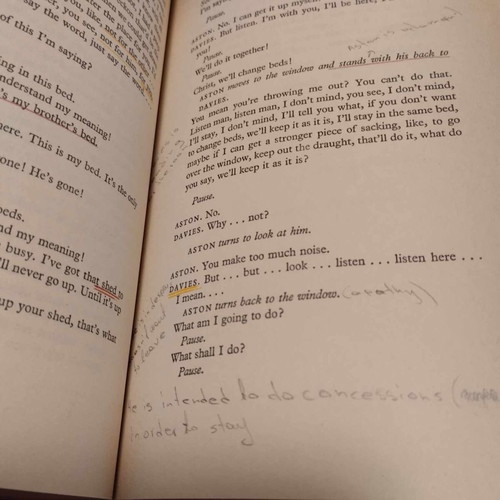 you, like, not for
er, you see, not for him, for
say the word, just say the
of this I'm saying?
ng in this bed.
nderstand my meaning!
's my brother's bed.
ere. This is my bed. It's the only
one! He's gone!
beds.
nd my meaning!
busy. I've got that shed to
ll never go up. Until it's up
up your shed, that's what
Pause.
ASTON. No. I can get it up myself.
DAVIES. But listen. I'm with you, I'll be here, I
Pause.
We'll do it together!
Pause.
Christ, we'll change beds!
ASTON moves to the window and stands with his back to
DAVIES.
You mean you're throwing me out? You can't do that.
Listen man, listen man, I don't mind, you see, I don't mind,
I'll stay, I don't mind, I'll tell you what, if you don't want
to change beds, we'll keep it as it is, I'll stay in the same bed,
maybe if I can get a stronger piece of sacking, like, to go
over the window, keep out the draught, that'll do it, what do
you say, we'll keep it as it is?
Pause.
ASTON. No.
DAVIES. Why . . . not?
ASTON turns to look at him.
ASTON. You make too much noise.
DAVIES. But . . . but . . . look . . . listen . . . listen here . . .
I mean. . . .
ASTON turns back to the window. (apathy)
What am I going to do?
Pause.
What shall I do?
Pause.
to leave
He is intended to do concessions
in order to stay